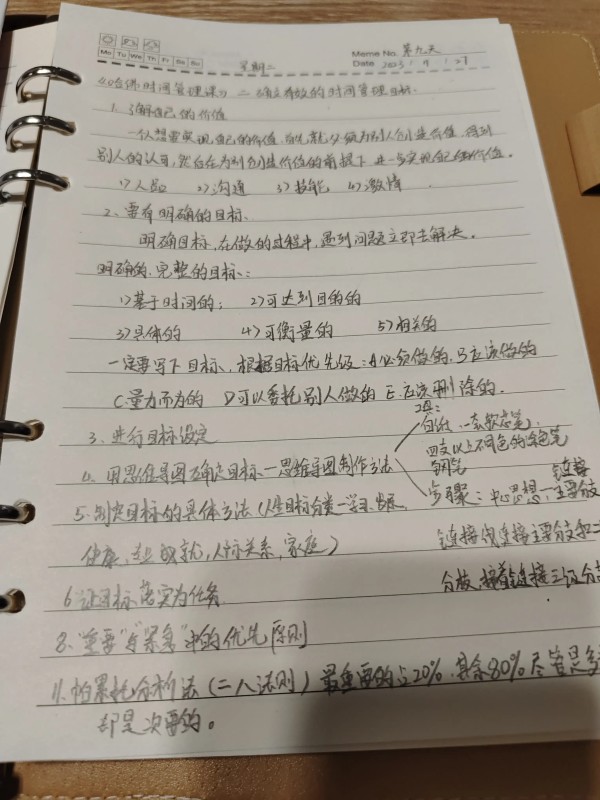 Mo Tu We Th Fr Sa Su
星期二
Memo No. 第九天
Date 2023 / 9 / 27
《哈佛时间管理课》 二 确立有效的时间管理目标
1. 了解自己的价值
一个人想要实现自己的价值,首先就必须为别人创造价值,得到
别人的认可,然后在为别人创造价值的前提下,进一步实现自己的价值。
1) 人品 2) 沟通 3) 技能 4) 激情
2、要有明确的目标、
明确目标,在做的过程中,遇到问题立即去解决。
明确的、完整的目标:
1) 基于时间的; 2) 可达到目的的
3) 具体的 4) 可衡量的 5) 相关的
一定要写下目标、根据目标优先级:A必须做的,B应该做的
C量力而为的 D可以委托别人做的 E.应该删除的.
3、进行目标设定
4、用思维导图确定目标一思维导图制作方法
工具:
白纸、一套软芯笔、
四支以上不同色的涂色笔
钢笔
步骤:中心思想、主要分
链接
5.制定目标的具体方法(人生目标分类一学习、发展、
健康、事业成就,人际关系,家庭)
链接 线连接主要分支和二
分枝,接着连接三级分
6 让目标落实为任务
8、"重要"与"紧急"中的优先原则
11、帕累托分析法(二八法则)最重要的占20%,其余80%尽管是多
却是次要的。